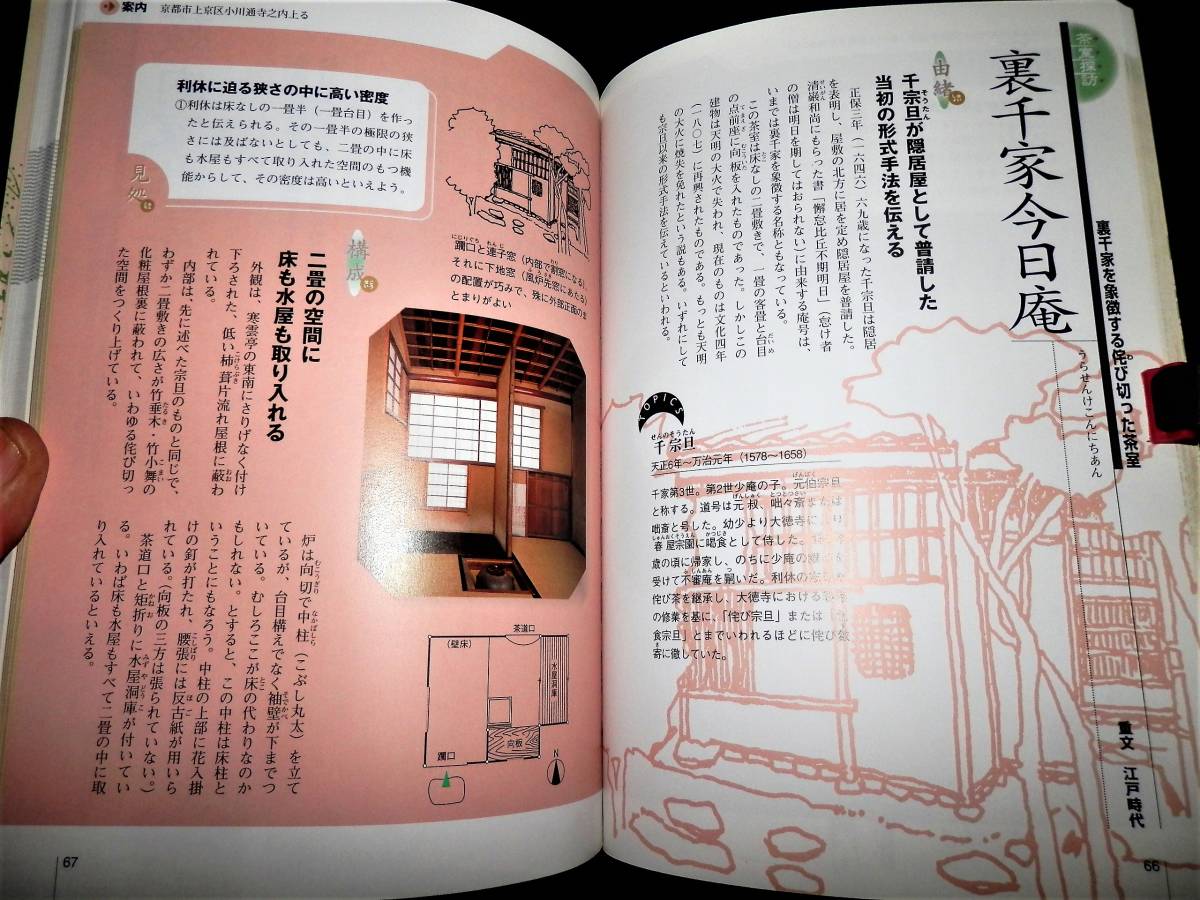 茶室探訪
裏千家今日庵
うらせんけこんにちあん
裏千家を象徴する侘び切った茶室
重文 江戸時代
由緒
千宗旦が隠居屋として普請した
当初の形式手法を伝える
正保三年（一六四六）六九歳になった千宗旦は隠居
を表明し、屋敷の北方に居を定め隠居屋を普請した。
清巌和尚にもらった書「懈怠比丘不期明日」（怠け者
の僧は明日を期してはおられない）に由来する庵号は、
いまでは裏千家を象徴する名称ともなっている。
この茶室は床なしの二畳敷きで、一畳の客畳と台目
の点前座に向板を入れたものであった。しかしこの
建物は天明の大火で失われ、現在のものは文化四年
（一八〇七）に再興されたものである。もっとも天明
の大火に焼失を免れたという説もある。いずれにして
も宗旦以来の形式手法を伝えているといわれる。
TOPICS
千宗旦
せんのそうたん
天正6年〜万治元年（1578〜1658）
千家第3世。第2世少庵の子。元伯宗旦
と称する。道号は元叔、咄々斎または
咄斎と号した。幼少より大徳寺に入り
春屋宗園に喝食として侍した。
歳の頃に帰家し、のちに少庵の
受けて不審庵を嗣いだ。利休の
侘び茶を継承し、大徳寺における
の修業を基に、「侘び宗旦」または「
食宗旦」とまでいわれるほどに侘び数
寄に徹していた。
66
案内 京都市上京区小川通寺之内上る
利休に迫る狭さの中に高い密度
①利休は床なしの一畳半（一畳台目）を作っ
たと伝えられる。その一畳半の極限の狭
さには及ばないとしても、二畳の中に床
も水屋もすべて取り入れた空間のもつ機
能からして、その密度は高いといえよう。
見処
躙口と連子窓（内部で割窓になる）
それに下地窓（風炉先窓にあたる）
の配置が巧みで、殊に外部正面のま
とまりがよい
構成
二畳の空間に
床も水屋も取り入れる
外観は、寒雲亭の東南にさりげなく付け
下ろされた、低い柿葺片流れ屋根に蔽わ
れている。
内部は、先に述べた宗旦のものと同じで、
わずか二畳敷きの広さが竹垂木・竹小舞の
化粧屋根裏に蔽われて、いわゆる侘び切っ
た空間をつくり上げている。
炉は向切で中柱（こぶし丸太）を立て
ているが、台目構えでなく袖壁が下までつ
いている。むしろここが床の代わりなのか
もしれない。とすると、この中柱は床柱と
いうことにもなろう。中柱の上部に花入掛
けの釘が打たれ、腰張には反古紙が用いら
れている。（向板の三方は張られていない。）
茶道口と矩折りに水屋洞庫が付いてい
る。いわば床も水屋もすべて二畳の中に取
り入れているといえる。
茶道口
（壁床）
水屋洞庫
向板
躙口
N
67